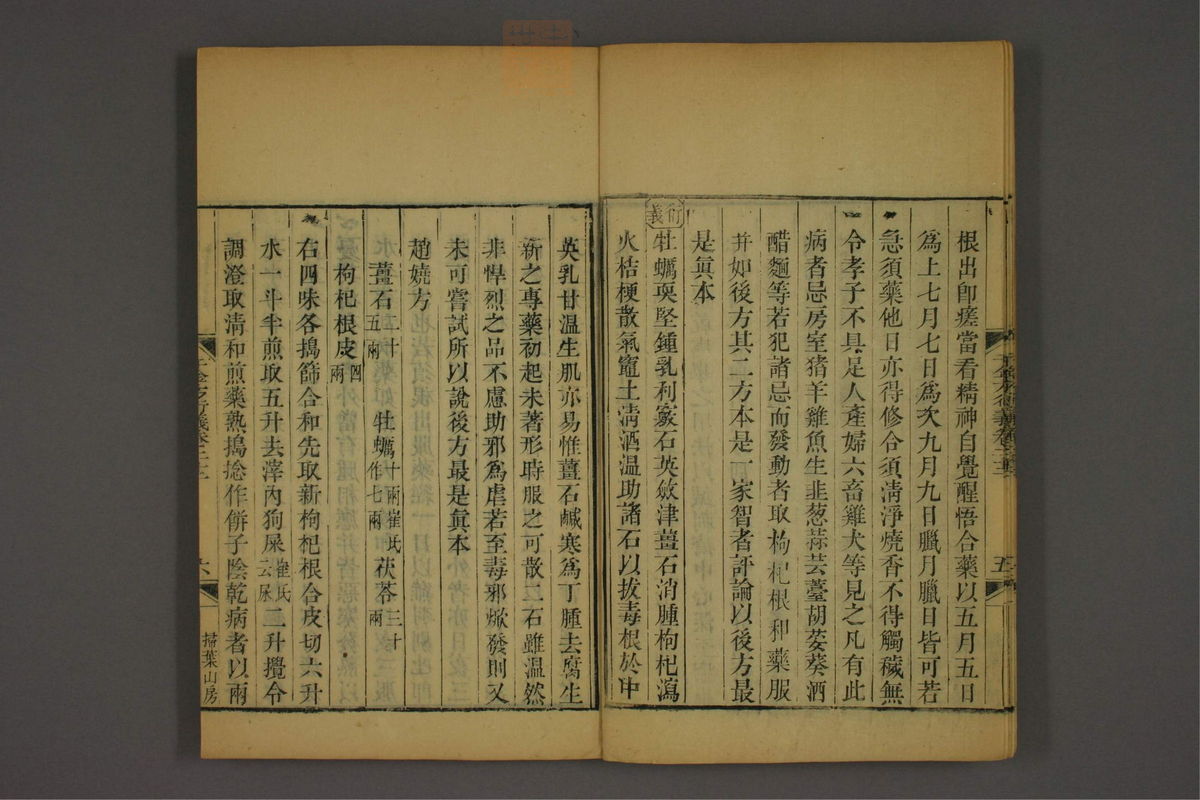 根出卽瘥當看精神自覺醒悟合藥以五月五日
爲上七月七日爲次九月九日臘月臘日皆可若
急須藥他日亦得修合須淸淨燒香不得觸穢無
令孝子不具足人產婦六畜雞犬等見之凡有此
病者忌房室猪羊雞魚生韭葱蒜芸薹胡荽葵酒
醋麵等若犯諸忌而發動者取枸杞根和藥服
并如後方其二方本是一家智者評論以後方最
是眞本
衍義
牡蠣耎堅鍾乳利竅石英斂津薑石消腫枸杞瀉
火桔梗散氣竈土淸酒温助諸石以拔毒根於中
五
英乳甘温生肌亦易惟薑石鹹寒爲丁腫去腐生
新之專藥初起未著形時服之可散二石雖温然
非悍烈之品不慮助邪爲虐若至毒邪焮發則又
未可嘗試所以說後方最是眞本
趙嬈方
薑石二十五兩 牡蠣十兩崔氏作七兩 茯苓三十兩
枸杞根皮四兩
右四味各搗篩合和先取新枸杞根合皮切六升
水一斗半煎取五升去滓內狗屎崔氏云尿二升攪令
調澄取淸和煎藥熟搗捻作餅子陰乾病者以兩
千金方衍義卷二十二
六
掃葉山房